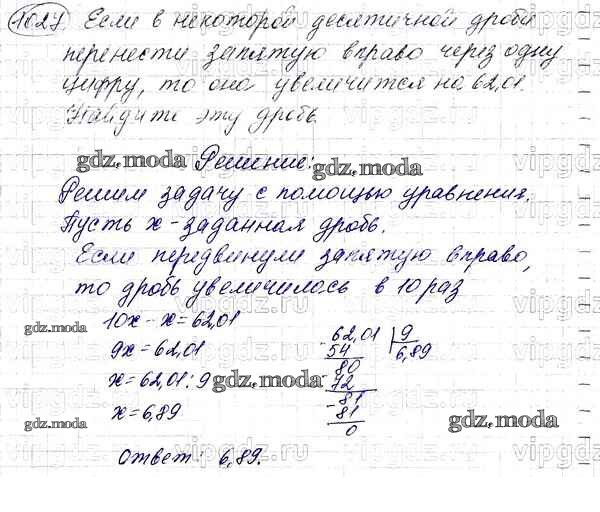 1027. Если в некоторой десятичной дроби
перенести запятую вправо через одну
цифру, то она увеличится на 62,01.
Найдите эту дробь.
gdz.moda Решение: gdz.moda
Решим задачу с помощью уравнения.
Пусть х - заданная дробь.
Если передвинули запятую вправо,
то дробь увеличилось в 10 раз
gdz.moda
10х - х = 62,01
9х = 62,01
х = 62,01 : 9
х = 6,89
62,01 9
54 6,89
80
72
81
81
0
gdz.moda
gdz.moda
gdz.moda
gdz.moda
Ответ: 6,89.
vipgdz.ru